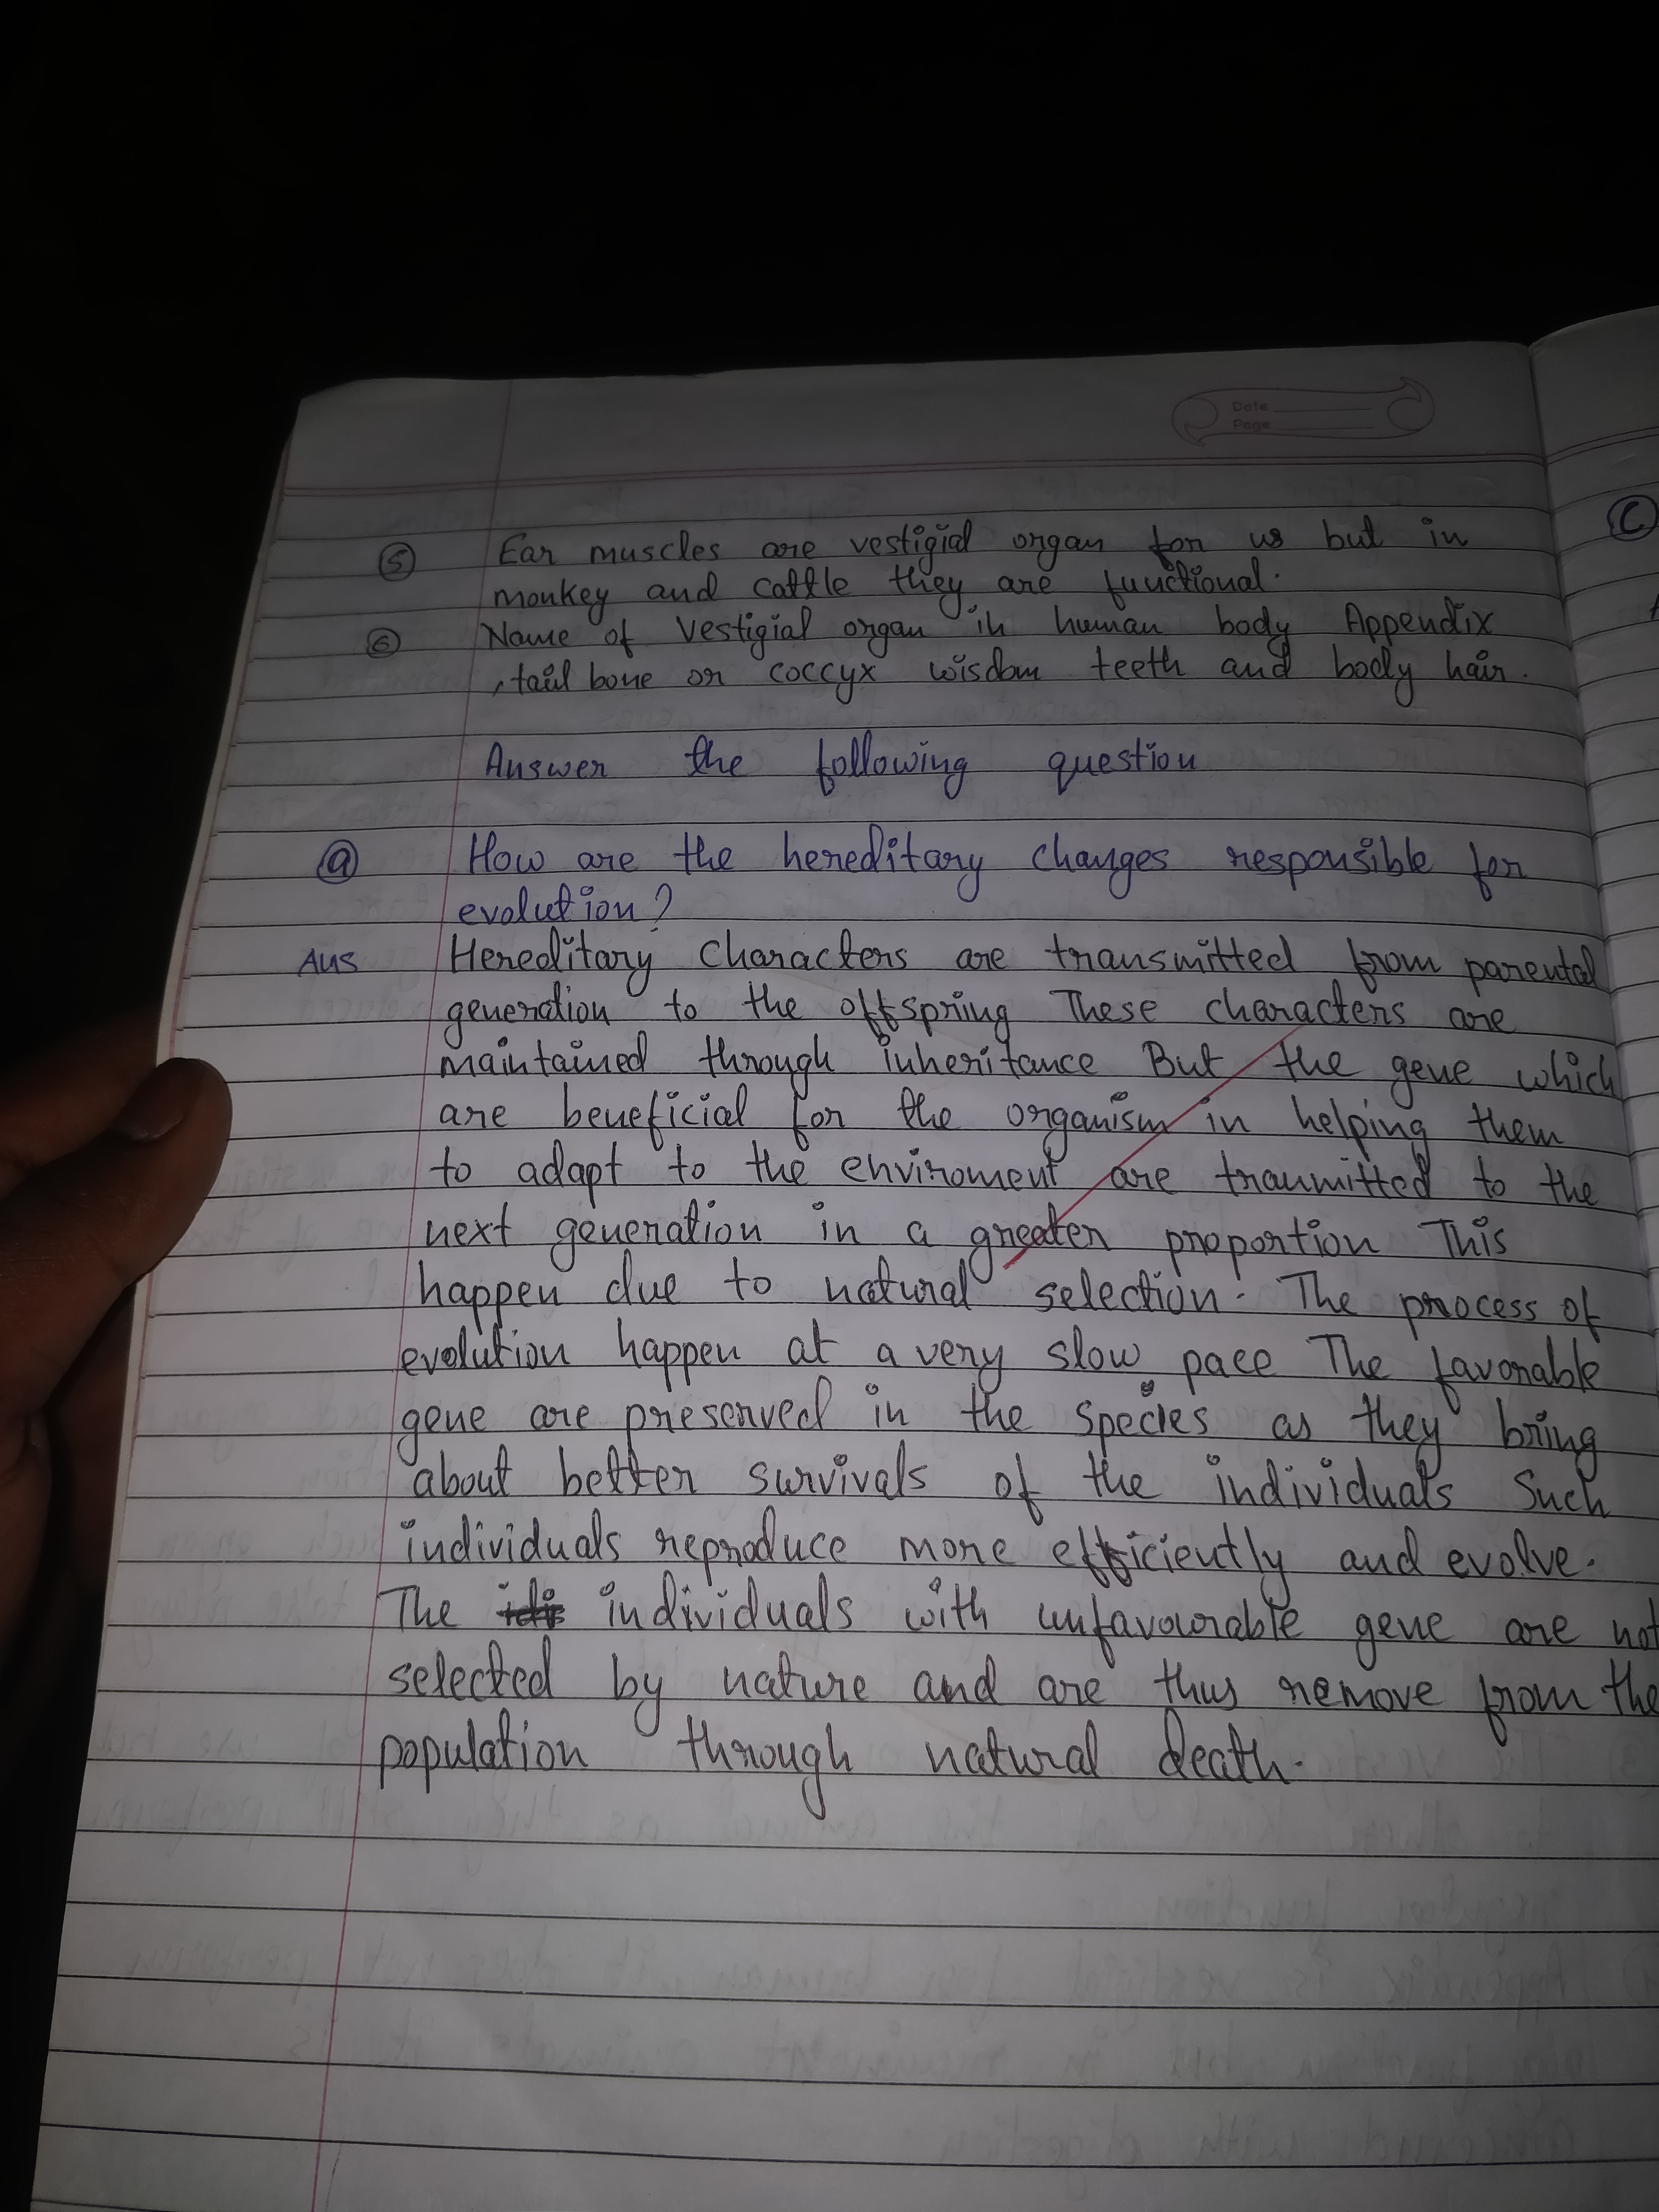 Date
Page
5 Ear muscles are vestigial organ for us but in
monkey and cattle they are functional.
6 Name of vestigial organ in human body Appendix
, tail bone or coccyx wisdom teeth and body hair.
Answer the following question
a How are the hereditary changes responsible for
evolution?
Ans Hereditary characters are transmitted from parental
generation to the offspring These characters are
maintained through inheritance But the gene which
are beneficial for the organism in helping them
to adapt to the enviroment are tranmitted to the
next generation in a greater proportion This
happen due to natural selection. The process of
evolution happen at a very slow pace The favorable
gene are preserved in the species as they bring
about better survivals of the individuals Such
individuals reproduce more efficiently and evolve.
The individuals with unfavourable gene are not
selected by nature and are thus remove from the
population through natural death.
C